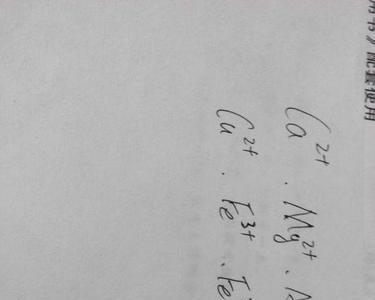 用书》配套使用
Ca²⁺ · Mg²⁺ ·
Cu²⁺ · Fe³⁺ · Fe